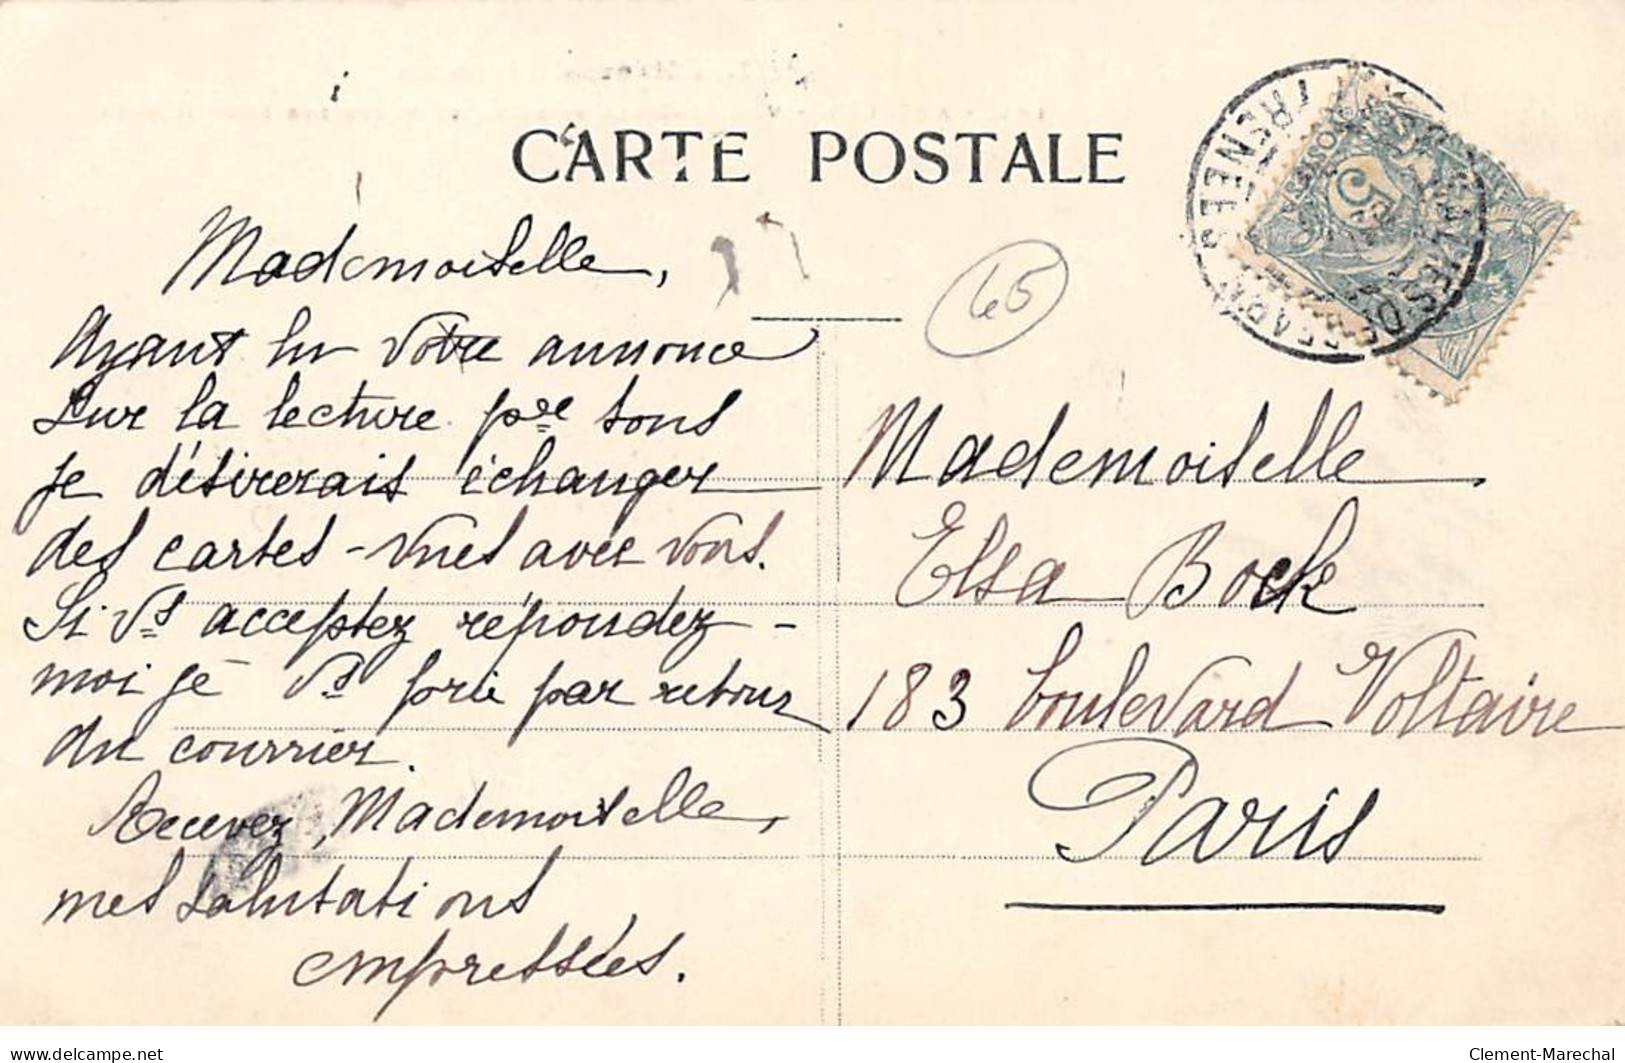 CARTE POSTALE
Mademoiselle,
Ayant lu votre annonce
sur la lecture pre tous
je désirerais échanger
des cartes-vues avec vous.
Si Vs acceptez répondez-
moi je Vs prie par retour
du courrier.
Recevez, Mademoiselle,
mes salutations
empressées.
45
Mademoiselle
Elsa Bock
183 boulevard Voltaire
Paris
SAUVETERRE DE BEARN
PYRENEES
5
delcampe.net
Clement-Marechal